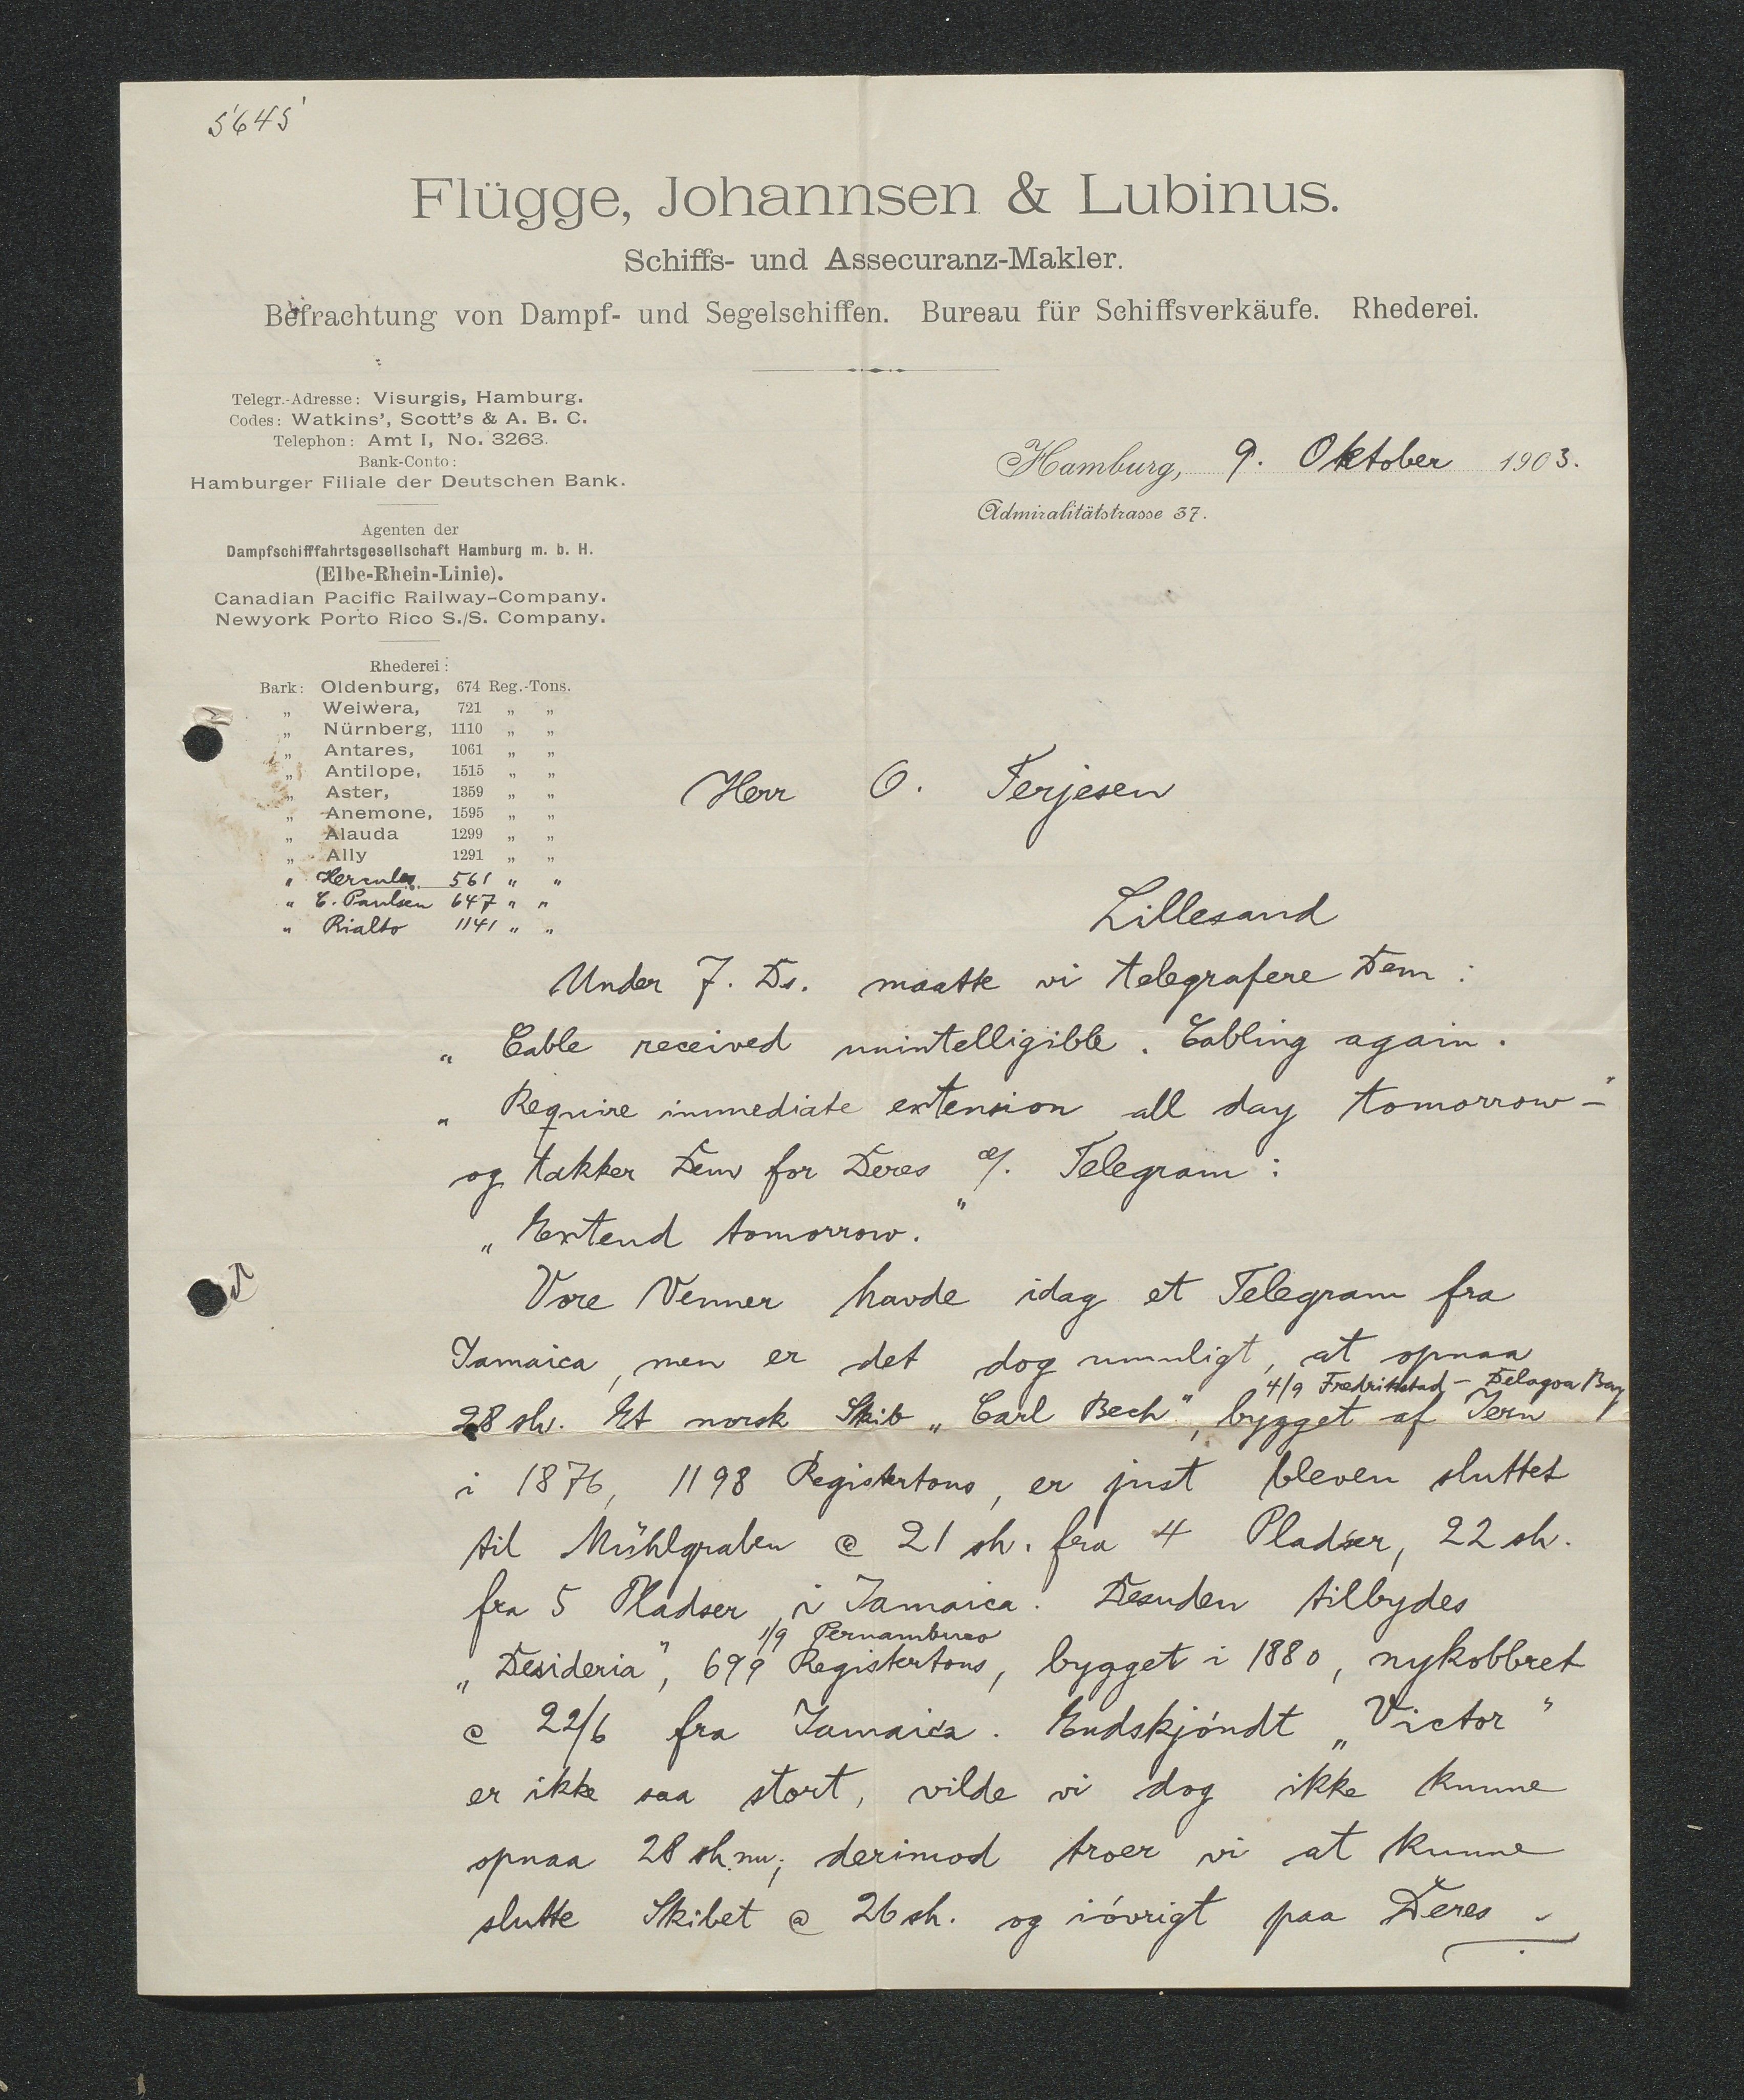 5645
Flügge, Johannsen & Lubinus.
Schiffs- und Assecuranz-Makler.
Befrachtung von Dampf- und Segelschiffen. Bureau für Schiffsverkäufe. Rhederei.
Telegr.-Adresse: Visurgis, Hamburg.
Codes: Watkins', Scott's & A. B. C.
Telephon: Amt I, No. 3263.
Bank-Conto:
Hamburger Filiale der Deutschen Bank.
Agenten der
Dampfschifffahrtsgesellschaft Hamburg m. b. H.
(Elbe-Rhein-Linie).
Canadian Pacific Railway-Company.
Newyork Porto Rico S./S. Company.
Rhederei:
Bark: Oldenburg, 674 Reg.-Tons.
„ Weiwera, 721 „ „
„ Nürnberg, 1110 „ „
„ Antares, 1061 „ „
„ Antilope, 1515 „ „
„ Aster, 1359 „ „
„ Anemone, 1595 „ „
„ Alauda 1299 „ „
„ Ally 1291 „ „
„ Hercules 561 „ „
„ C. Paulsen 647 „ „
„ Rialto 1141 „ „
Hamburg, 9. Oktober 1903.
Admiralitätstrasse 37.
Herr O. Terjesen
Lillesand
Under 7. Ds. maatte vi telegrafere Dem:
„ Cable received unintelligible. Cabling again.
„ Require immediate extension all day tomorrow –"
og takker Dem for Deres Telegram:
„ Extend tomorrow."
Vore Venner havde idag et Telegram fra
Jamaica, men er det dog umuligt, at opnaa
4/9 Fredrikstad – Delagoa Bay
28 sh. Et norsk Skib „Carl Bech", bygget af Jern
i 1876, 1198 Registertons, er just bleven sluttet
til Mühlgraben @ 21 sh. fra 4 Pladser, 22 sh.
fra 5 Pladser i Jamaica. Desuden tilbydes
1/9 Pernambuco
„Desideria", 699 Registertons, bygget i 1880, nykobbret
@ 22/6 fra Jamaica. Endskjóndt „Victor"
er ikke saa stort, vilde vi dog ikke kunne
opnaa 28 sh. nu; derimod troer vi at kunne
slutte Skibet @ 26 sh. og ióvrigt paa Deres